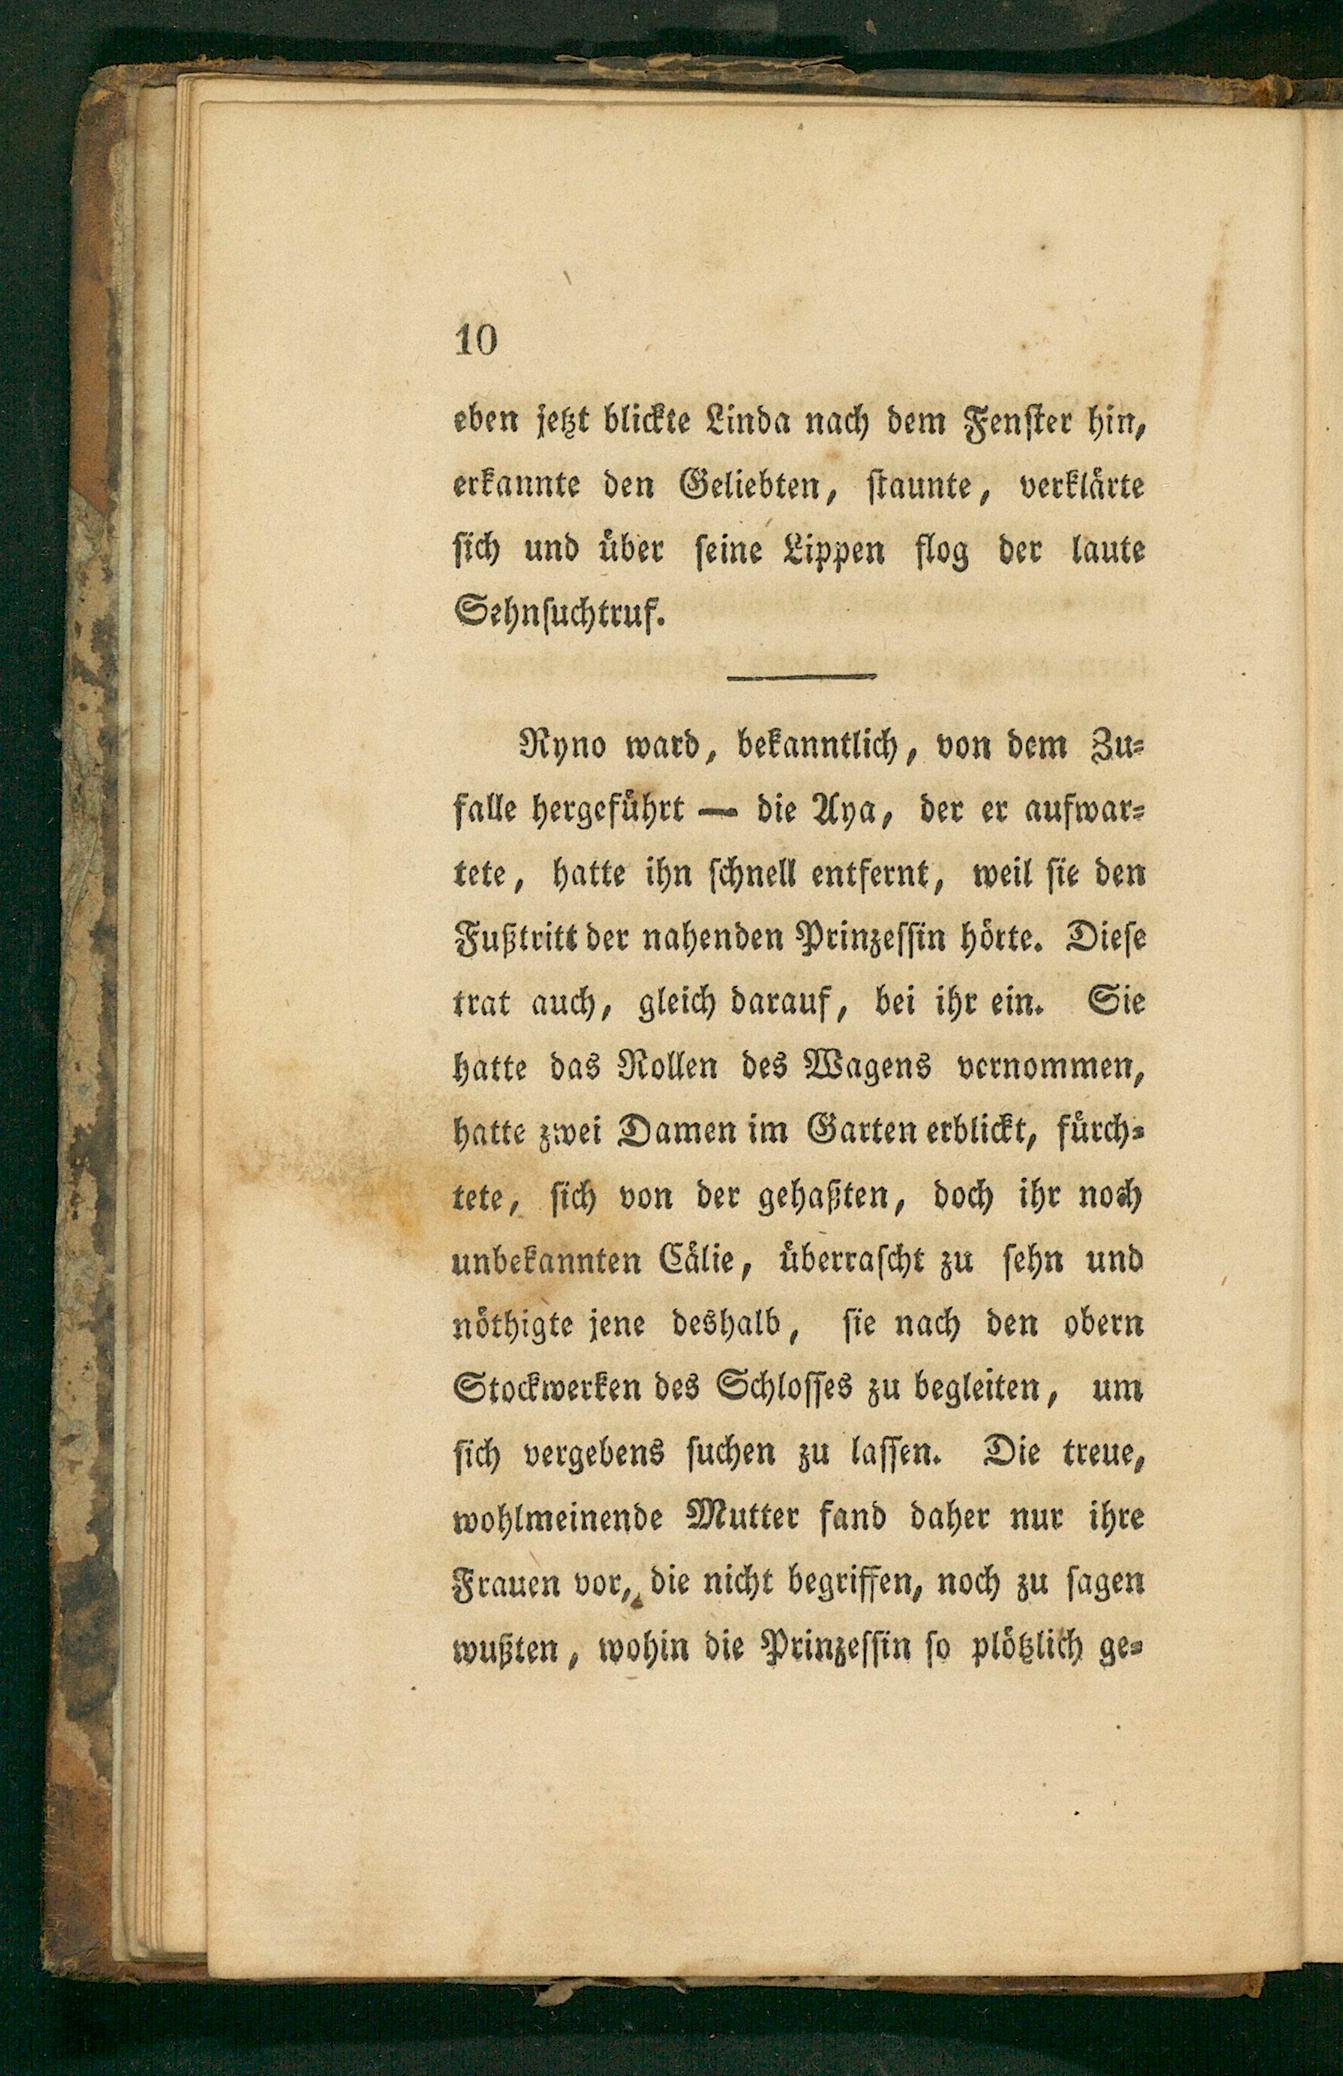 10
eben jetzt blickte Linda nach dem Fenſter hin,
erkannte den Geliebten, ſtaunte, verklärte
ſich und über ſeine Lippen flog der laute
Sehnſuchtruf.
Ryno ward, bekanntlich, von dem Zu-
falle hergeführt — die Aya, der er aufwar-
tete, hatte ihn ſchnell entfernt, weil ſie den
Fußtritt der nahenden Prinzeſſin hörte. Dieſe
trat auch, gleich darauf, bei ihr ein. Sie
hatte das Rollen des Wagens vernommen,
hatte zwei Damen im Garten erblickt, fürch-
tete, ſich von der gehaßten, doch ihr noch
unbekannten Cälie, überraſcht zu ſehn und
nöthigte jene deshalb, ſie nach den obern
Stockwerken des Schloſſes zu begleiten, um
ſich vergebens ſuchen zu laſſen. Die treue,
wohlmeinende Mutter fand daher nur ihre
Frauen vor, die nicht begriffen, noch zu ſagen
wußten, wohin die Prinzeſſin ſo plötzlich ge-